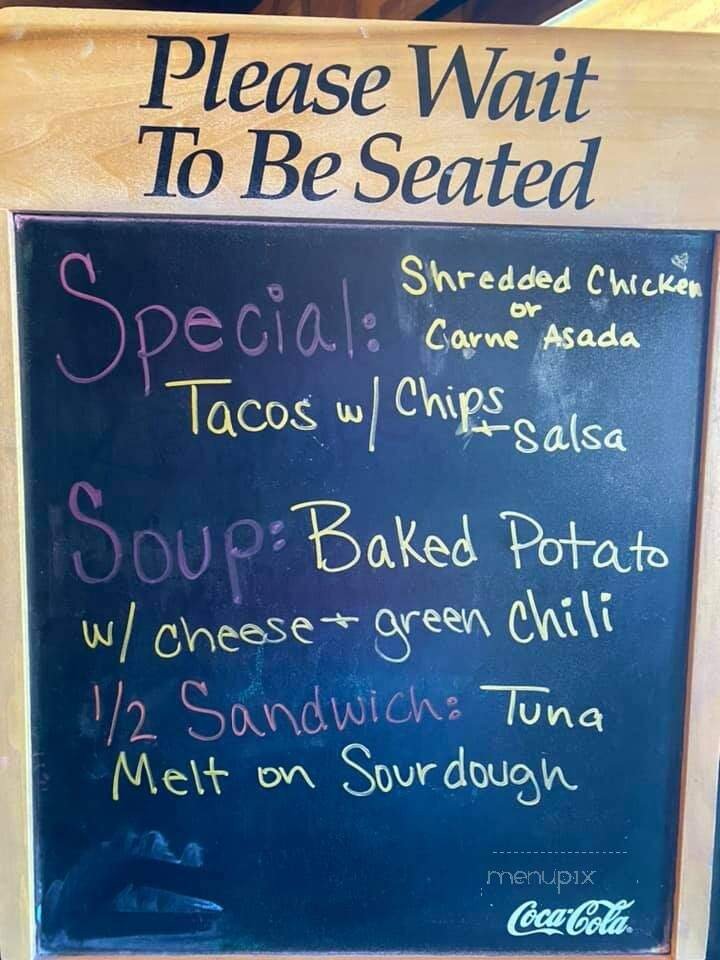 Please Wait
To Be Seated
Special: Shredded Chicken
or
Carne Asada
Tacos w/ Chips
+ Salsa
Soup: Baked Potato
w/ cheese + green chili
1/2 Sandwich: Tuna
Melt on Sourdough
menupix
Coca-Cola